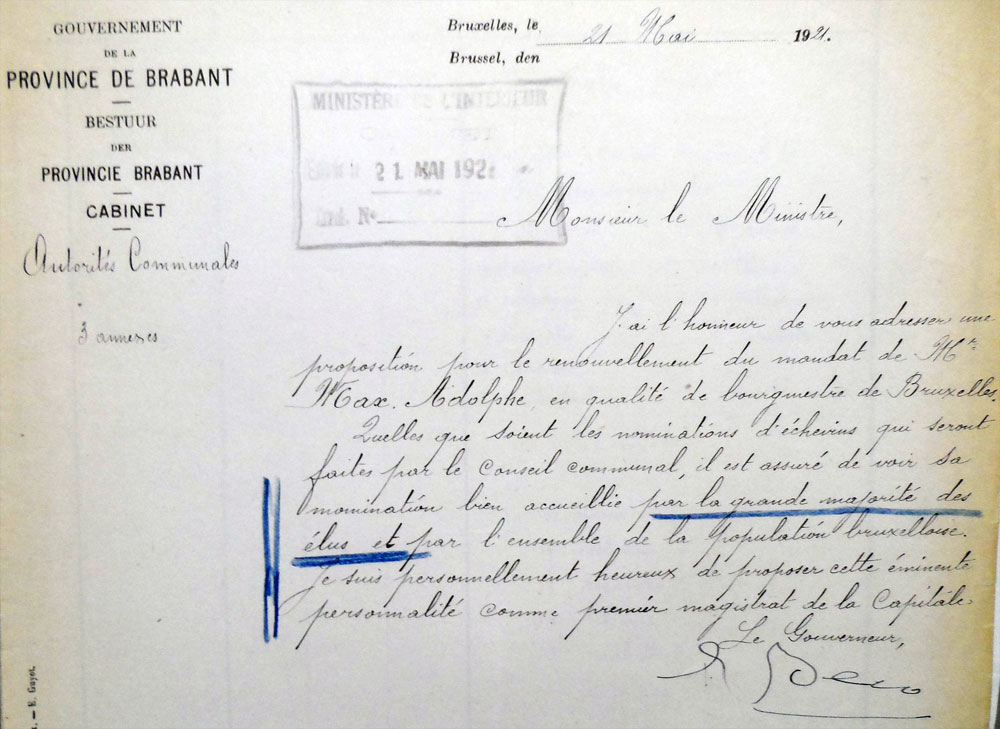 GOUVERNEMENT
DE LA
PROVINCE DE BRABANT
BESTUUR
DER
PROVINCIE BRABANT
CABINET
Autorités Communales
3 annexes
Bruxelles, le 21 Mai 1921.
Brussel, den
MINISTÈRE DE L'INTÉRIEUR
21 MAI 192
Ind. N°
Monsieur le Ministre,
J'ai l'honneur de vous adresser une
proposition pour le renouvellement du mandat de Mr.
Max. Adolphe, en qualité de bourgmestre de Bruxelles.
Quelles que soient les nominations d'échevins qui seront
faites par le Conseil communal, il est assuré de voir sa
nomination bien accueillie par la grande majorité des
élus et par l'ensemble de la population bruxelloise.
Je suis personnellement heureux de proposer cette éminente
personnalité comme premier magistrat de la Capitale.
Le Gouverneur,
Beco
. — E. Guyot.